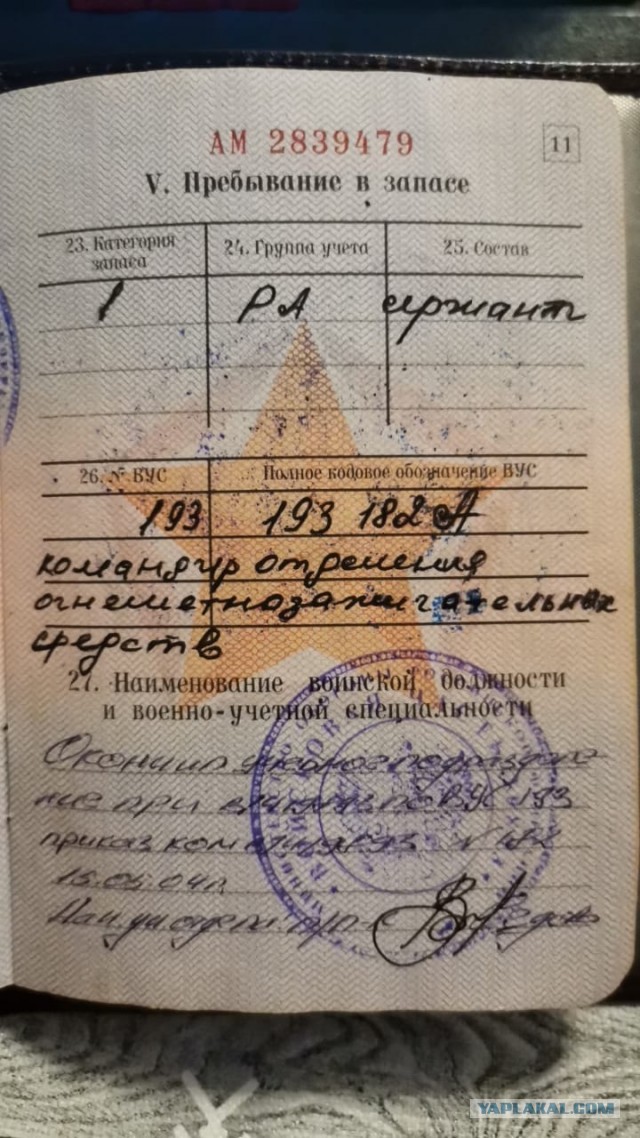 АМ 2839479
11
V. Пребывание в запасе
23. Категория запаса
24. Группа учета
25. Состав
1 РА сержант
26. № ВУС
Полное кодовое обозначение ВУС
193 193 182 А
командир отделения
огнеметнозажигательных
средств
27. Наименование воинской должности
и военно-учетной специальности
Окончил учебное подразделе
ние при по ВУС 193
приказ
15.05.04г.
YAPLAKAL.COM